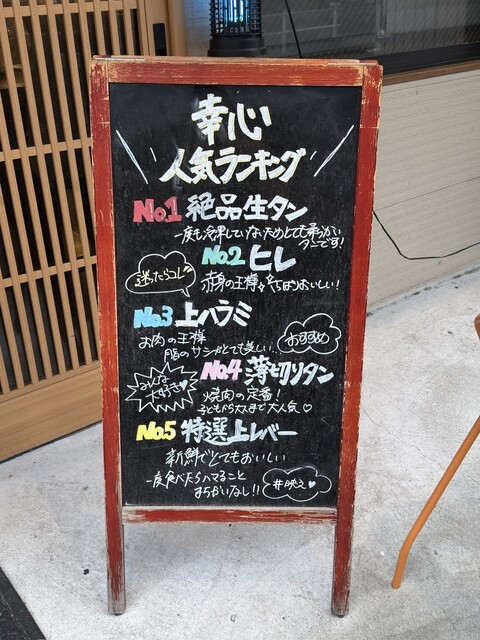 幸心
人気ランキング
No.1 絶品生タン
一度も冷凍していないためとても柔らかい
タンです!
No.2 ヒレ
迷ったらコレ
赤身の王様 やっぱりおいしい!
No.3 上ハラミ
お肉の王様
脂のサシがとても美しい
おすすめ
No.4 薄切りタン
みんな
大好き♥
焼肉の定番!
子どもから大人まで大人気♡
No.5 特選上レバー
新鮮でとてもおいしい
一度食べたらハマること
まちがいなし!!
#映え♥